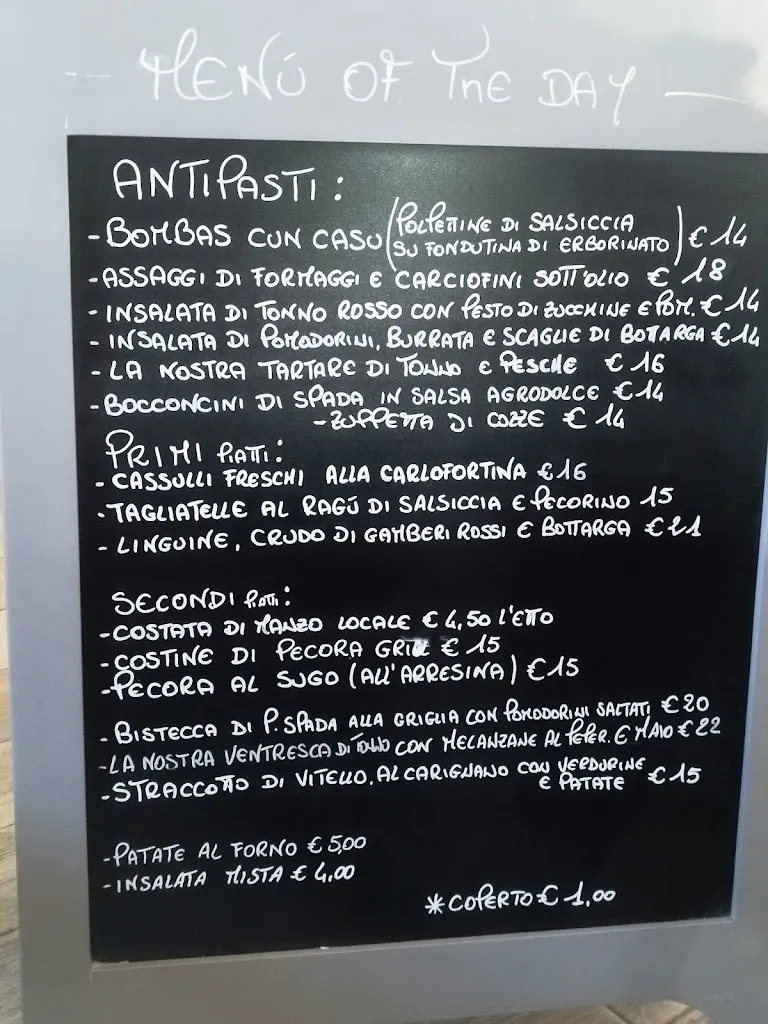 - MENÙ OF THE DAY -
ANTIPASTI:
- BOMBAS CUN CASU (POLPETTINE DI SALSICCIA SU FONDUTINA DI ERBORINATO) € 14
- ASSAGGI DI FORMAGGI E CARCIOFINI SOTT'OLIO € 18
- INSALATA DI TONNO ROSSO CON PESTO DI ZUCCHINE E POM. € 14
- INSALATA DI POMODORINI, BURRATA E SCAGLIE DI BOTARGA € 14
- LA NOSTRA TARTARE DI TONNO E PESCHE € 16
- BOCCONCINI DI SPADA IN SALSA AGRODOLCE € 14
- ZUPPETTA DI COZZE € 14
PRIMI PIATTI:
- CASSULLI FRESCHI ALLA CARLOFORTINA € 16
- TAGLIATELLE AL RAGÚ DI SALSICCIA E PECORINO 15
- LINGUINE, CRUDO DI GAMBERI ROSSI E BOTTARGA € 21
SECONDI PIATTI:
- COSTATA DI MANZO LOCALE € 4,50 L'ETTO
- COSTINE DI PECORA GRILL € 15
- PECORA AL SUGO (ALL'ARRESINA) € 15
- BISTECCA DI P. SPADA ALLA GRIGLIA CON POMODORINI SALTATI € 20
- LA NOSTRA VENTRESCA DI TONNO CON MELANZANE AL PEPER. E MAIO € 22
- STRACCOTTO DI VITELLO, AL CARIGNANO CON VERDURINE E PATATE € 15
- PATATE AL FORNO € 5,00
- INSALATA MISTA € 4,00
* COPERTO € 1,00